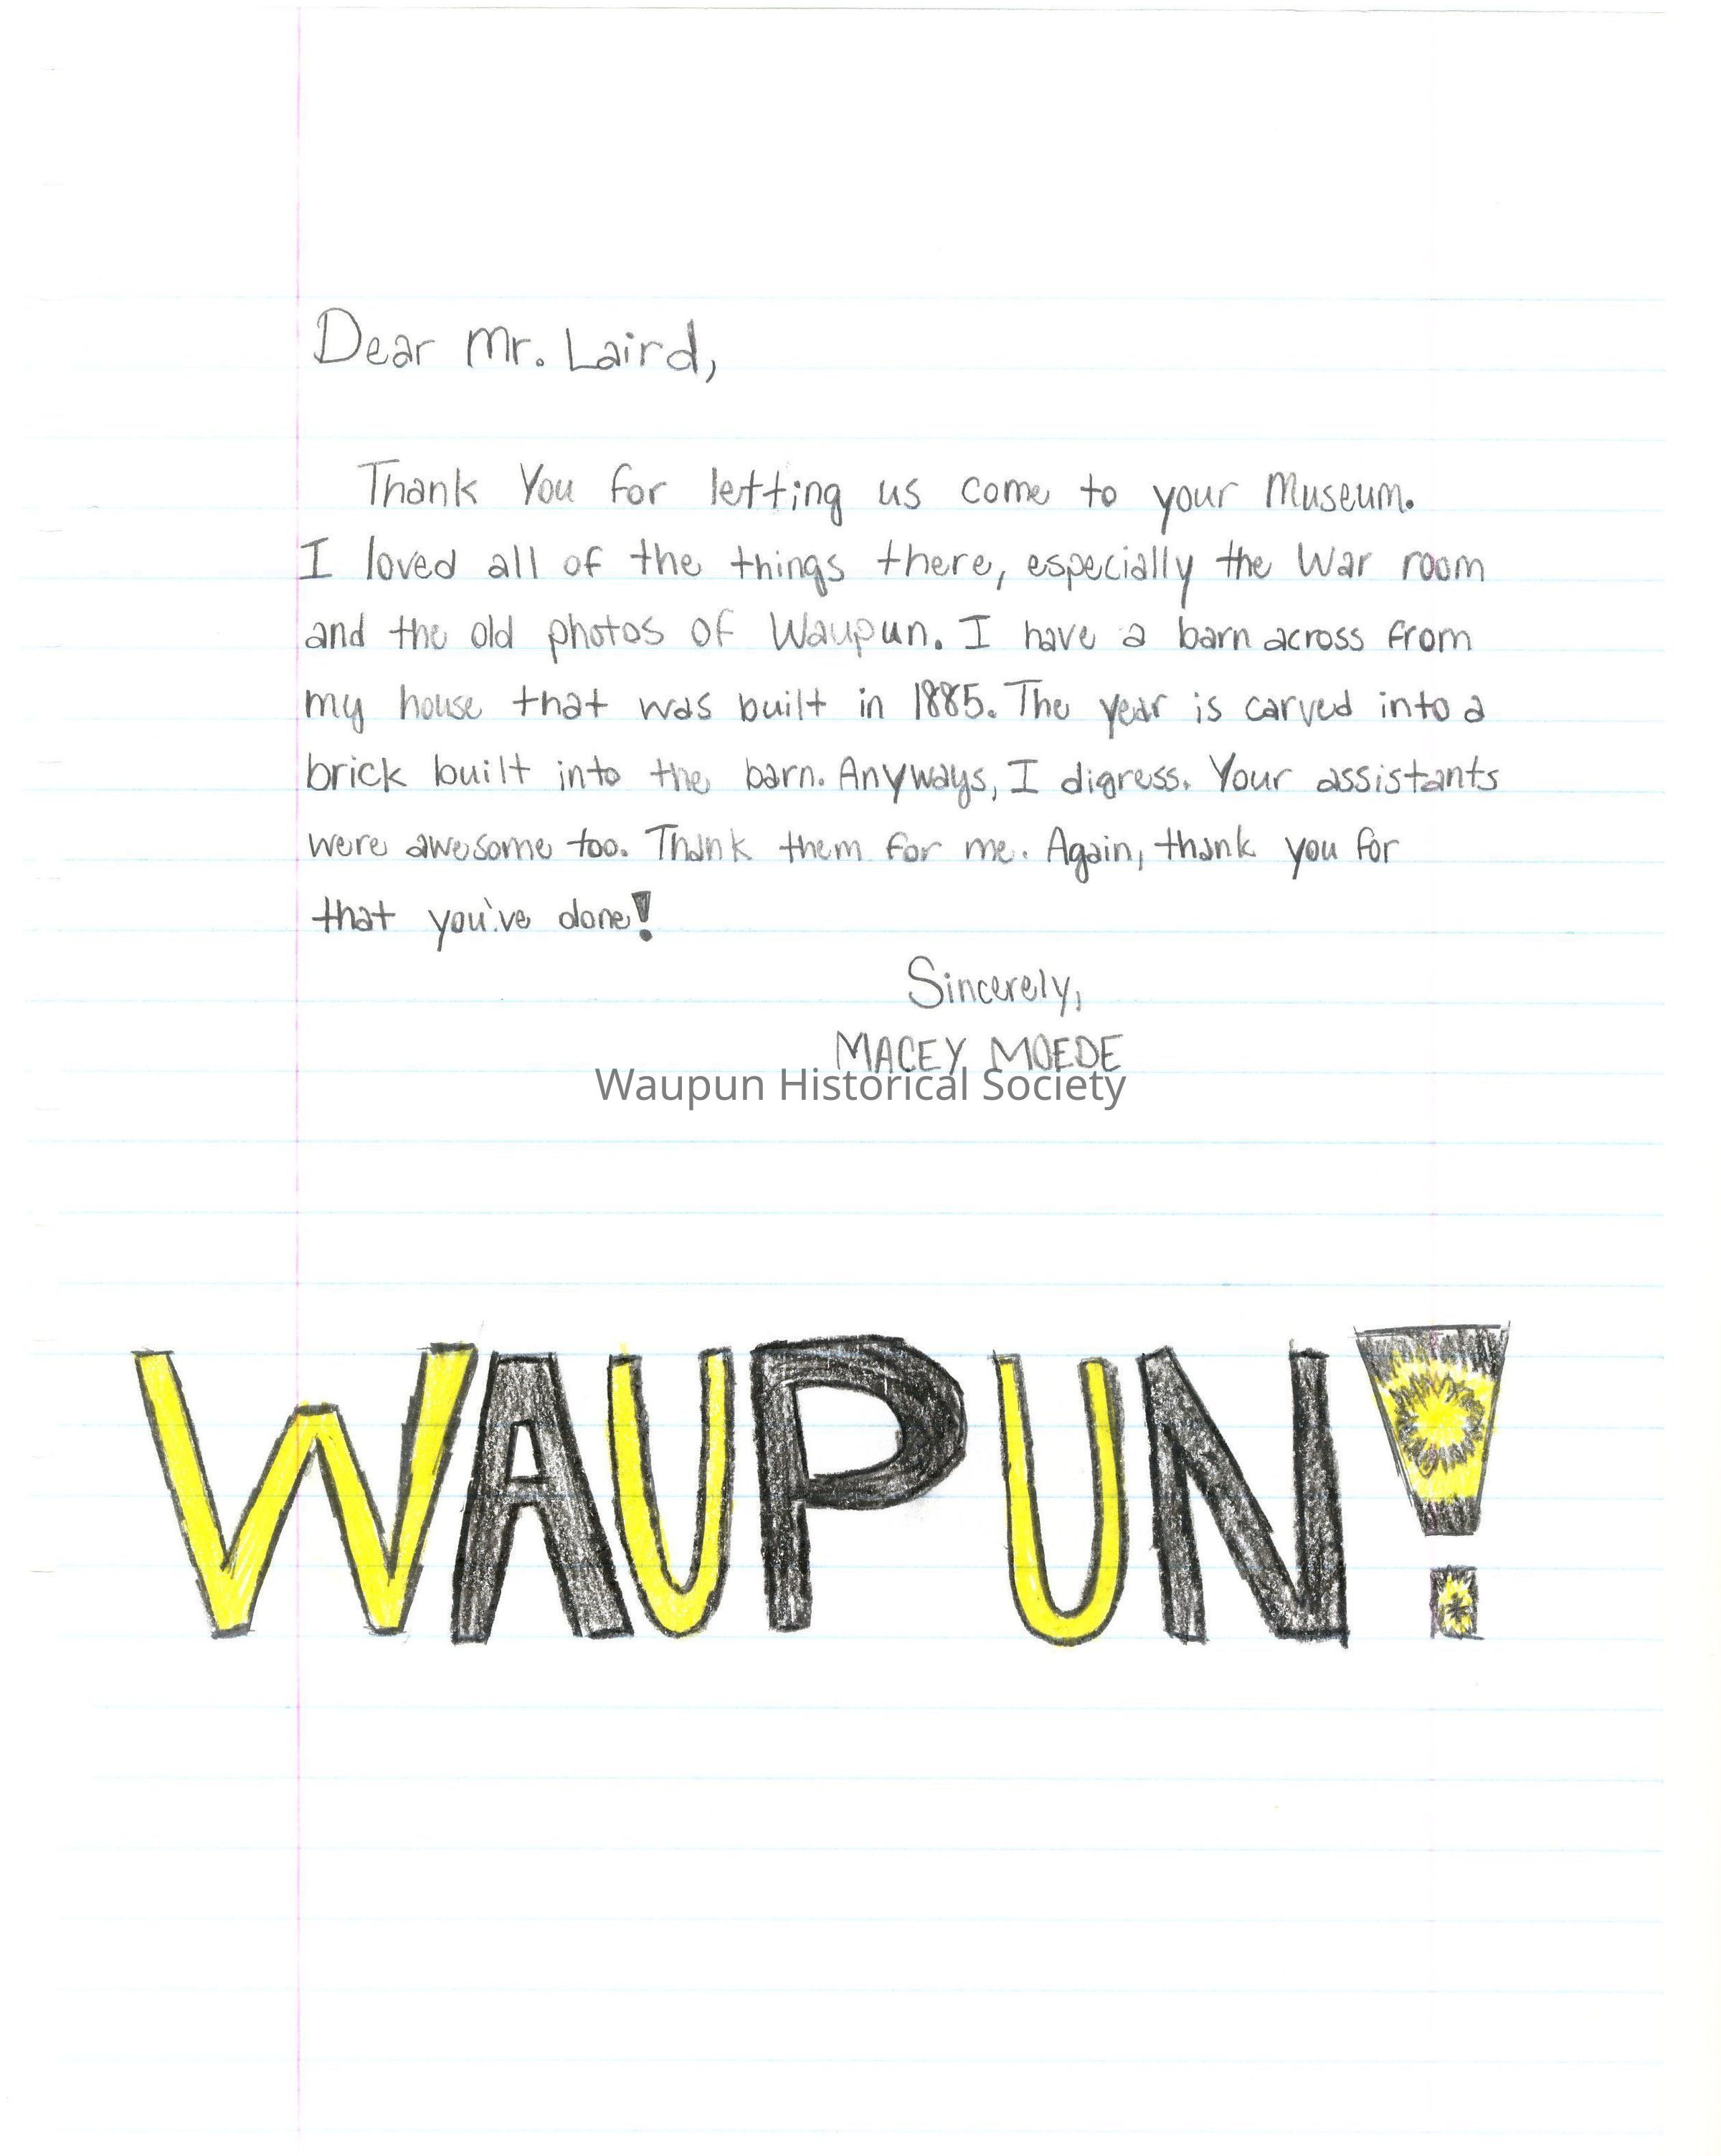 Dear Mr. Laird,
Thank You for letting us come to your Museum.
I loved all of the things there, especially the War room
and the old photos of Waupun. I have a barn across from
my house that was built in 1885. The year is carved into a
brick built into the barn. Anyways, I digress. Your assistants
were awesome too. Thank them for me. Again, thank you for
that you've done!
Sincerely,
MACEY MOEDE
Waupun Historical Society
WAUPUN!